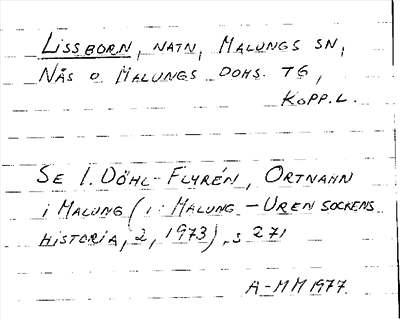 LISSBORN, NATN, MALUNGS SN,
NÅS O. MALUNGS DOMS. TG,
KOPP.L.
SE I. DÖHL-FLYRÉN, ORTNAMN
I MALUNG (I: MALUNG - UR EN SOCKENS
HISTORIA, 2, 1973), S 271
A-MM 1977.